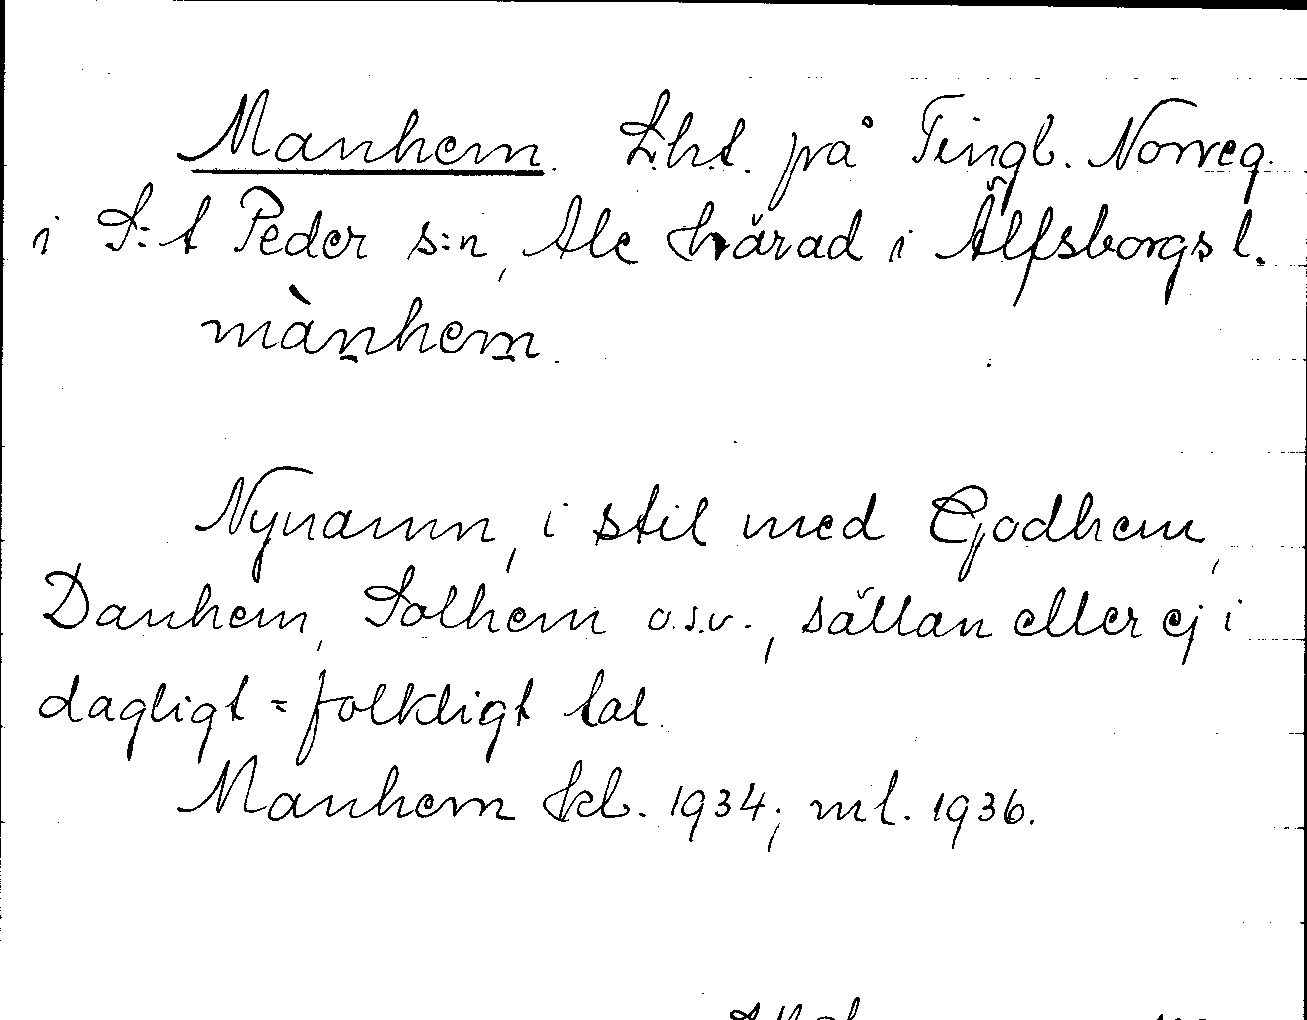 Manhem. Lht. på Tingb. Norreg.
i S:t Peder s:n, Ale härad i Älfsborgs l.
mànhem.
Nynamn, i stil med Godhem,
Danhem, Solhem o.s.v., sällan eller ej i
dagligt-folkligt tal.
Manhem kl. 1934; ml. 1936.